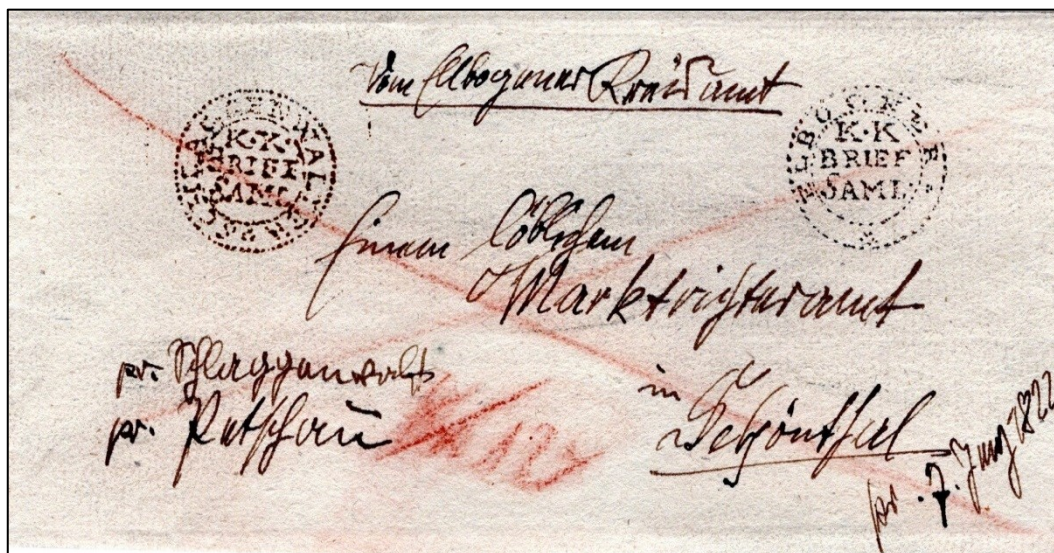 Vom Elbogener Kreisamt
K·K·
BRIEF
SAML
K·K
BRIEF
SAML
Einem Löblichen
Marktrichteramt
pr. Schlaggenwald
in
pr. Petschau
Schönthal
pr. 7. Juny 1822